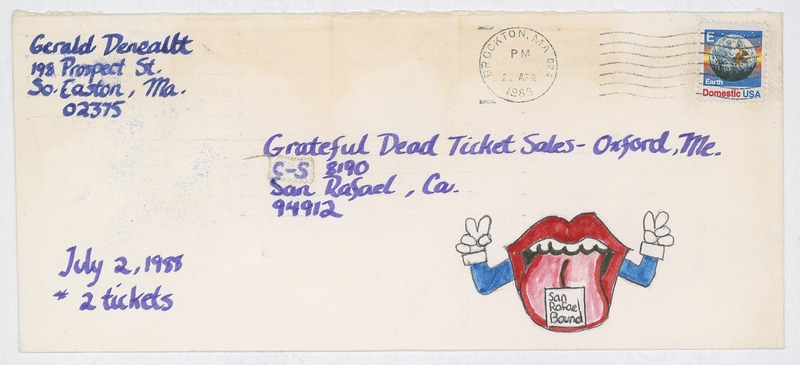 Gerald Deneallt
198 Prospect St.
So. Easton, Ma.
02375
BROCKTON, MA 024
PM
APR
1988
E
Earth
Domestic USA
Grateful Dead Ticket Sales - Oxford, Me.
C-S 8190
San Rafael, Ca.
94912
July 2, 1988
* 2 tickets
San
Rafael
Bound